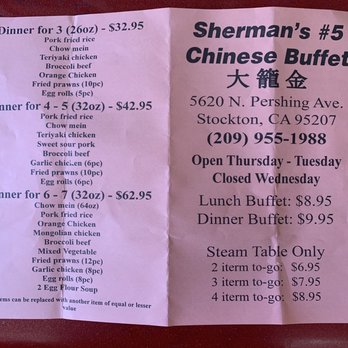 Dinner for 3 (26oz) - $32.95
Pork fried rice
Chow mein
Teriyaki chicken
Broccoli beef
Orange Chicken
Fried prawns (10pc)
Egg rolls (5pc)
nner for 4 - 5 (32oz) - $42.95
Pork fried rice
Chow mein
Teriyaki chicken
Sweet sour pork
Broccoli beef
Garlic chicken (6pc)
Fried prawns (10pc)
Egg rolls (6pc)
nner for 6 - 7 (32oz) - $62.95
Chow mein (64oz)
Pork fried rice
Orange Chicken
Mongolian chicken
Broccoli beef
Mixed Vegetable
Fried prawns (12pc)
Garlic chicken (8pc)
Egg rolls (8pc)
2 Egg Flour Soup
tems can be replaced with another item of equal or lesser
value
Sherman's #5
Chinese Buffet
大籠金
5620 N. Pershing Ave.
Stockton, CA 95207
(209) 955-1988
Open Thursday - Tuesday
Closed Wednesday
Lunch Buffet: $8.95
Dinner Buffet: $9.95
Steam Table Only
2 iterm to-go: $6.95
3 iterm to-go: $7.95
4 iterm to-go: $8.95